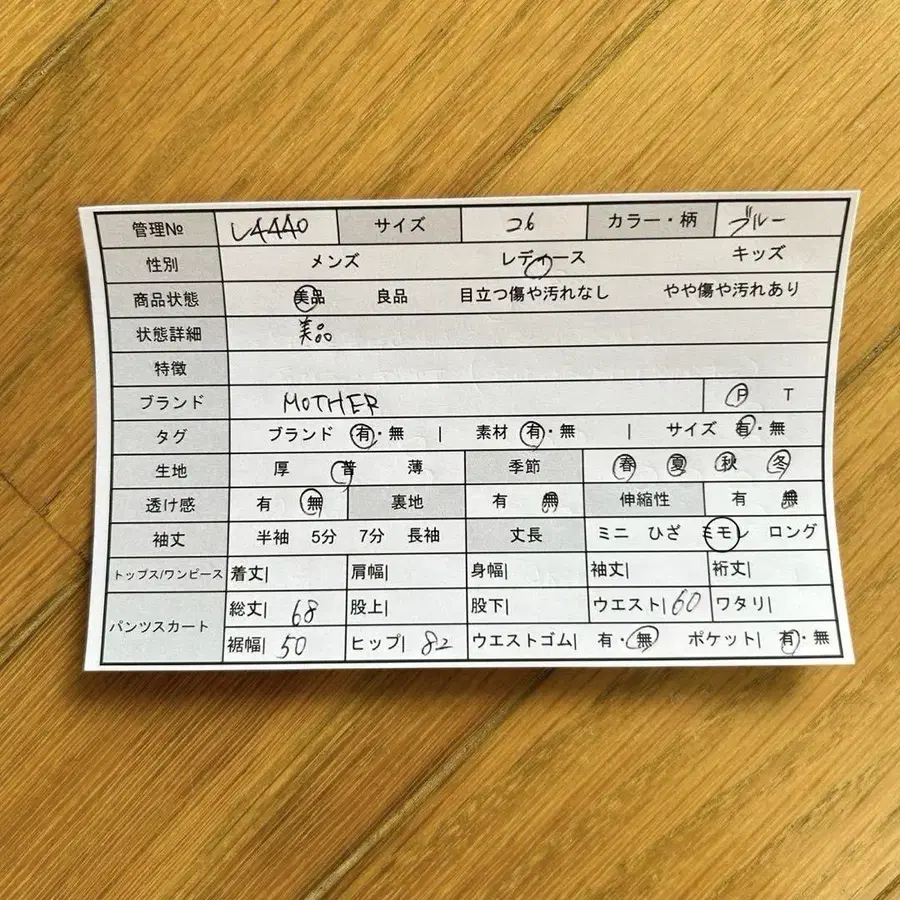 管理№ L4440 サイズ 26 カラー・柄 ブルー
性別 メンズ レディース キッズ
商品状態 美品 良品 目立つ傷や汚れなし やや傷や汚れあり
状態詳細 美品
特徴
ブランド MOTHER P T
タグ ブランド 有・無 | 素材 有・無 | サイズ 有・無
生地 厚 普 薄 季節 春 夏 秋 冬
透け感 有 無 裏地 有 無 伸縮性 有 無
袖丈 半袖 5分 7分 長袖 丈長 ミニ ひざ ミモレ ロング
トップス/ワンピース 着丈| 肩幅| 身幅| 袖丈| 裄丈|
パンツスカート 総丈| 68 股上| 股下| ウエスト| 60 ワタリ|
裾幅| 50 ヒップ| 82 ウエストゴム| 有・無 ポケット| 有・無